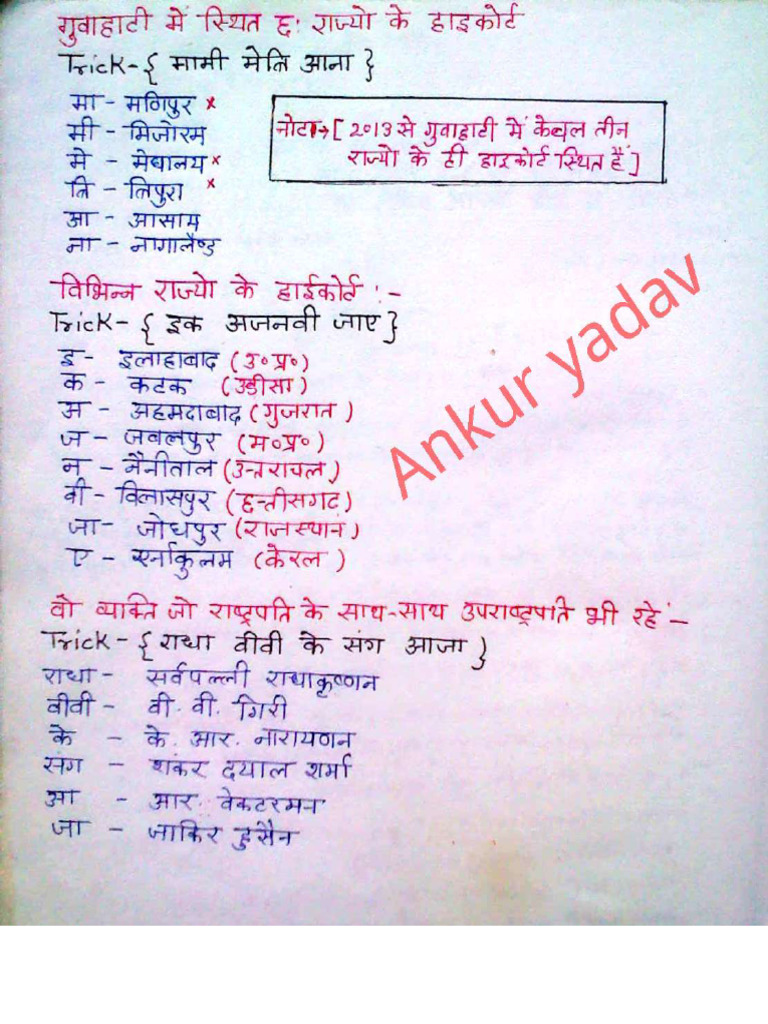 गुवाहाटी में स्थित छः राज्यो के हाइकोर्ट
Trick-{ मामी मेत्रि आना }
मा - मणिपुर ×
मी - मिजोरम
मे - मेघालय ×
त्रि - त्रिपुरा ×
आ - आसाम
ना - नागालैण्ड
नोट→[ 2013 से गुवाहाटी में केवल तीन
राज्यो के ही हाइकोर्ट स्थित हैं ]
विभिन्न राज्यो के हाईकोर्ट :-
Trick-{ इक अजनवी जाए }
इ - इलाहाबाद (उ०प्र०)
क - कटक (उड़ीसा)
अ - अहमदाबाद (गुजरात)
ज - जबलपुर (म०प्र०)
न - नैनीताल (उत्तराचल)
वी - विलासपुर (छत्तीसगढ)
जा - जोधपुर (राजस्थान)
ए - एर्नाकुलम (केरल)
वो व्यक्ति जो राष्ट्रपति के साथ-साथ उपराष्ट्रपति भी रहे :-
Trick-{ राधा वीवी के संग आजा }
राधा - सर्वपल्ली राधाकृष्णन
वीवी - वी. वी. गिरी
के - के. आर. नारायणन
संग - शंकर दयाल शर्मा
आ - आर. वेकटरमन
जा - जाकिर हुसैन
Ankur yadav